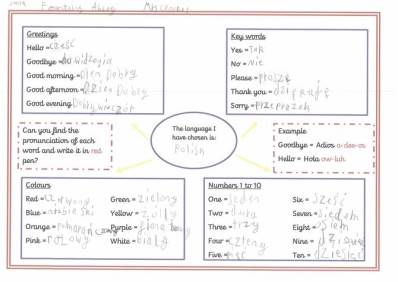 Greetings
Hello = cześć
Goodbye = Do widzenia
Good morning = Dzien Dobry
Good afternoon = Dzien Dobry
Good evening Dobry wieczór
Key words
Yes = Tak
No = Nie
Please = proszę
Thank you = dziękuję
Sorry = przepraszam
Can you find the
pronunciation of each
word and write it in red
pen?
The language I
have chosen is:
Polish
Example
Goodbye = Adios a-dee-os
Hello = Hola ow-luh
Colours
Red = czerwony
Blue = niebieski
Orange = pomarańczowy
Pink = różowy
Green = zielony
Yellow = żółty
Purple =
White = biały
Numbers 1 to 10
One = jeden
Two = dwa
Three = trzy
Four = cztery
Five =
Six = sześć
Seven = siedem
Eight = osiem
Nine = dziewięć
Ten = dziesięć